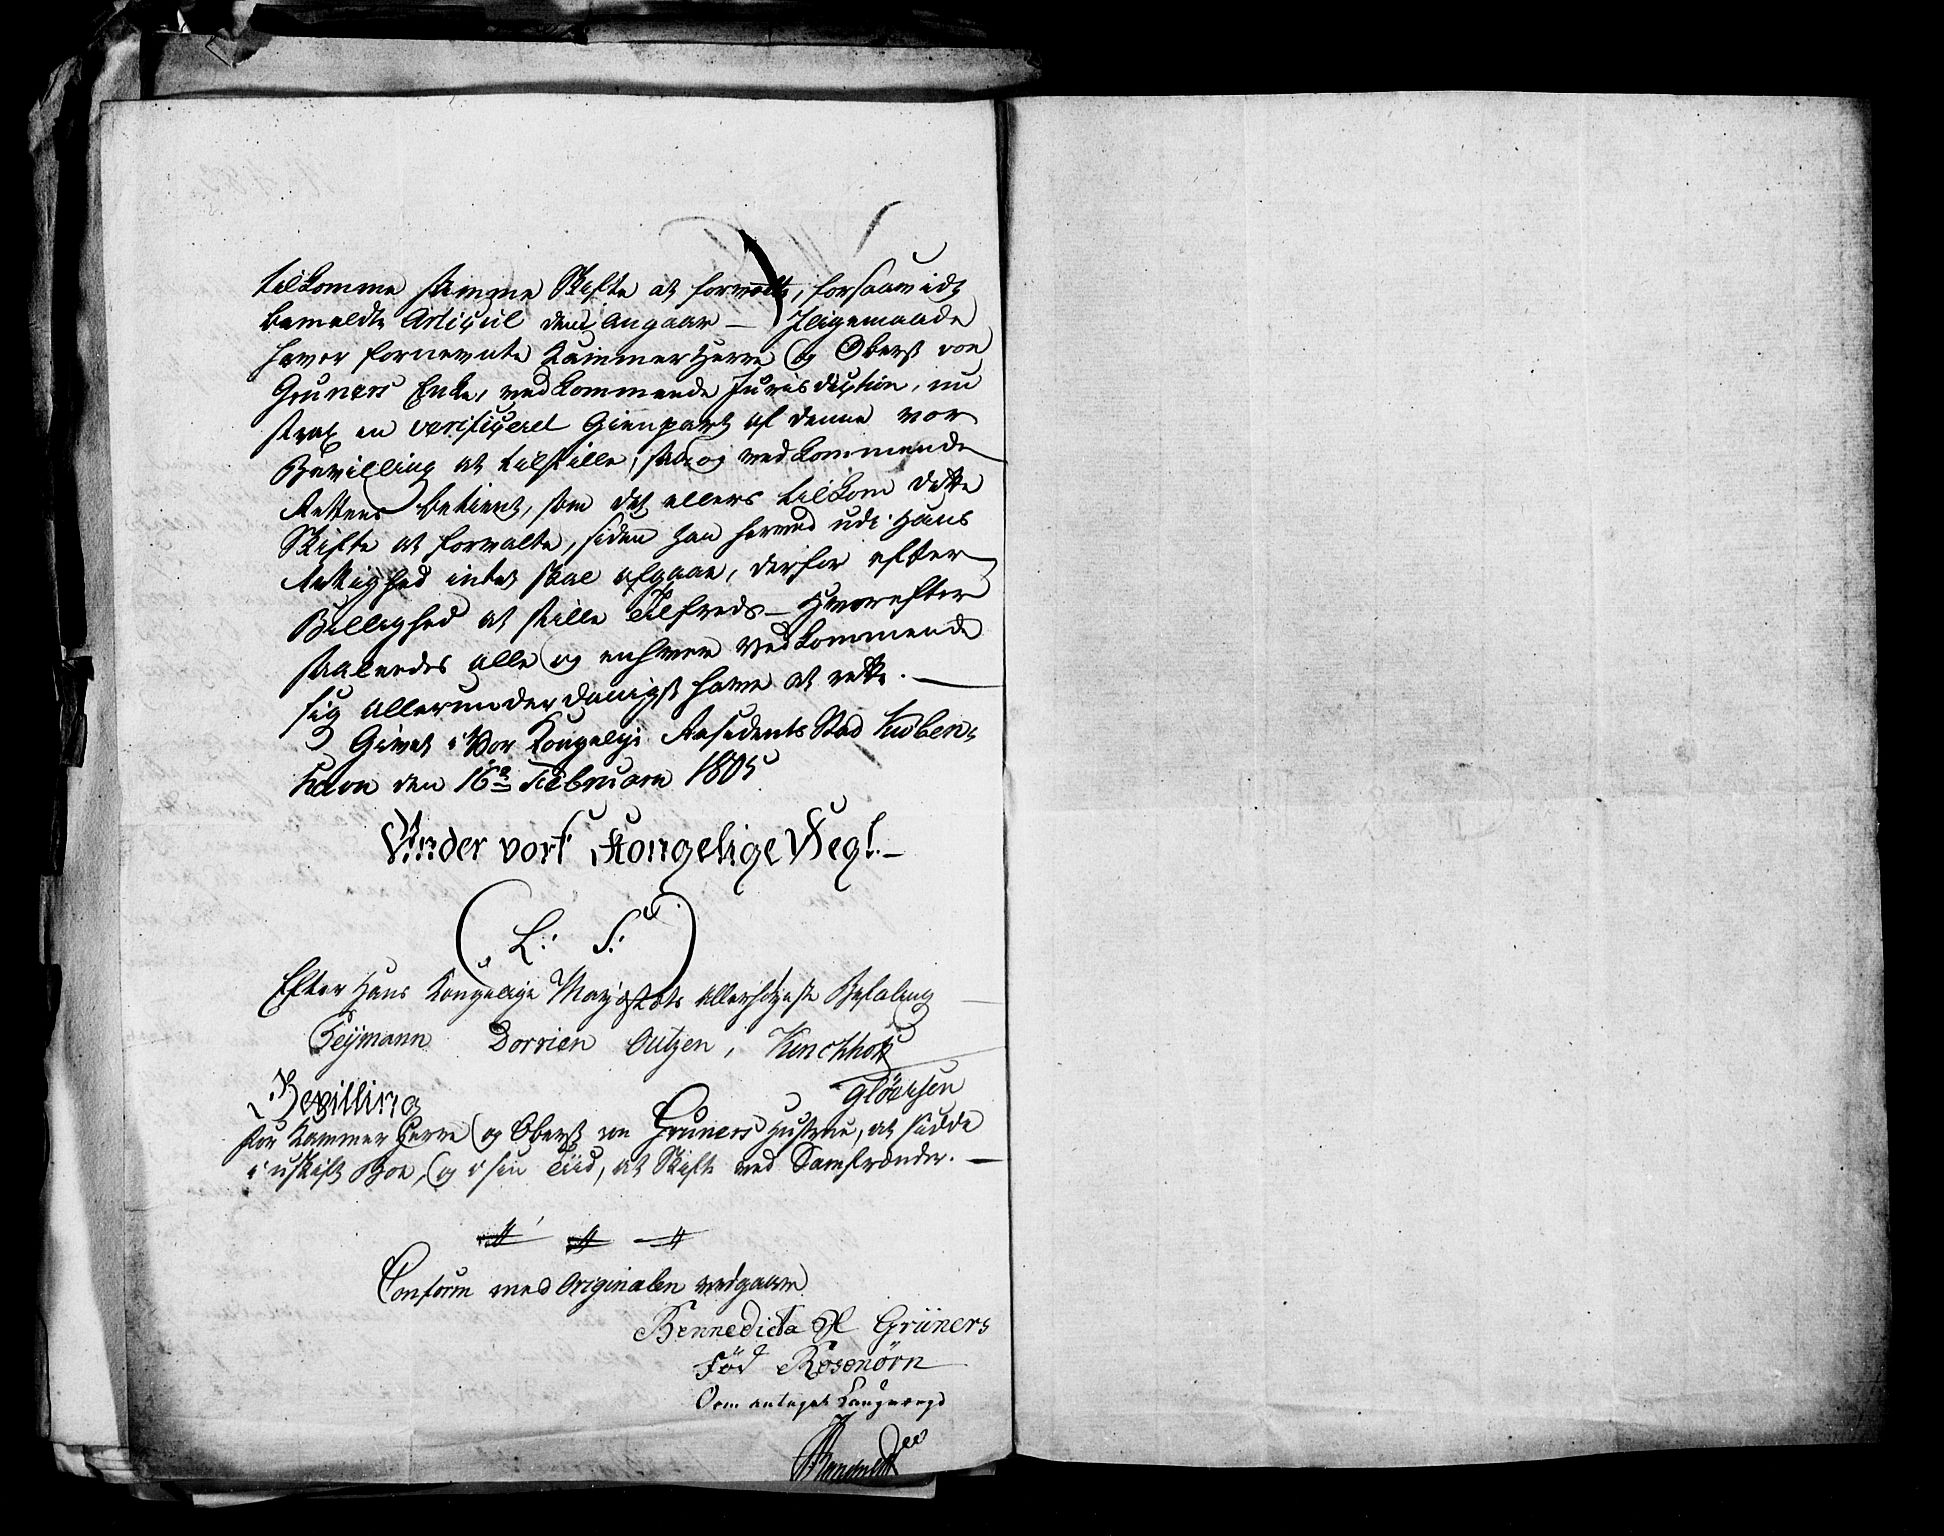 tilkomme samme Skifte at forvalte, forsaavidt
bemeldte Articul dem angaar — Iligemaade
haver fornevnte Kammer Herre og Oberst von
Gruners Enke, vedkommende Jurisdiction, nu
strax en verificeret Gienpart af denne vor
Bevilling at tilstille, saa og vedkommende
Rettens betient, som det ellers tilkom dette
Skifte at forvalte, siden han herved udi hans
Rettighed intet skal afgaae, derfor efter
Billighed at stille Tilfreds — Hvorefter
saaledes alle og enhver Vedkommende
sig allerunderdanigst have at rette. —
Givet i Vor Kongelige Residents Stad Kiøben-
havn den 16de Februarii 1805
Under vort Kongelige Segl. —
(L: S:)
Efter Hans Kongelige Majestæts Allerhøyeste Befaling
Feÿmann Dorrien Outzen, Kirchhoff
Bevilling
for Kammer Herre og Oberst von Gruners Hustrue, at sidde
i uskift Boe, og i sin Tiid, at Skifte ved Samfrænder. —
Conform med Originalen vedgaaer
Bennedicta H Grüners
Fød Rosenørn
Som antaget Laugværge